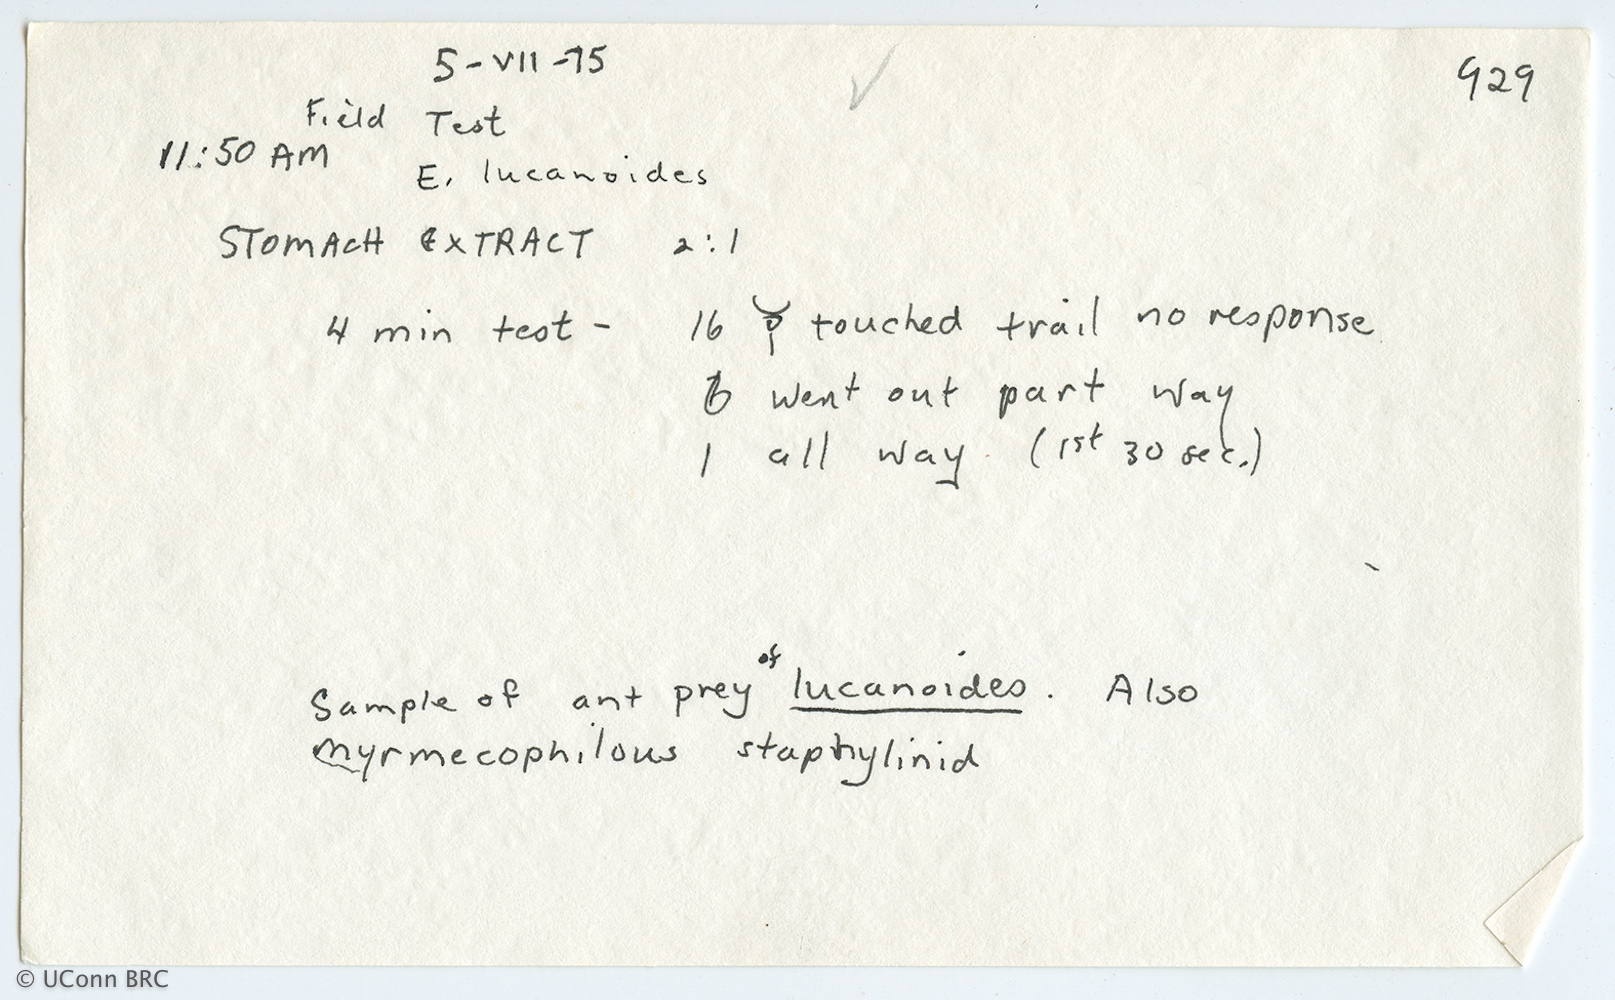 5-VII-75
929
Field Test
11:50 AM
E. lucanoides
STOMACH EXTRACT 2:1
4 min test - 16 ☿ touched trail no response
6 went out part way
1 all way. (1st 30 sec.)
Sample of ant prey of lucanoides. Also
myrmecophilous staphylinid
© UConn BRC